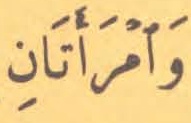 وَٱمْرَأَتَانِ